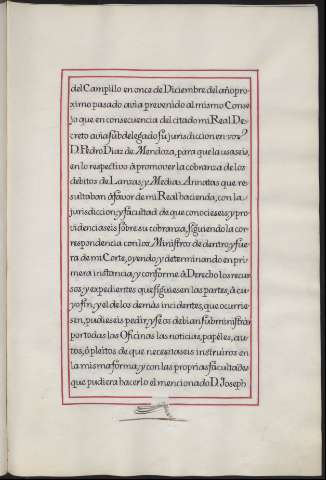 del Campillo en once de Diciembre del año pro-
ximo pasado avia prevenido al mismo Conse-
jo que en consecuencia del citado mi Real De-
creto avia subdelegado su jurisdiccion en vos
D. Pedro Diaz de Mendoza, para que la usaseis,
en lo respectivo à promover la cobranza de los
debitos de Lanzas, y Medias Annatas que re-
sultaban à favor de mi Real hacienda, con la
jurisdiccion, y facultad de que conocieseis, y pro-
videnciaseis sobre su cobranza, siguiendo la cor-
respondencia con los Ministros de dentro, y fue-
ra de mi Corte, oyendo, y determinando en pri-
mera instancia, y conforme à Derecho los recur-
sos, y expedientes que siguiesen las partes, à cu-
yo fin, y el de los demàs incidentes, que ocurrie-
sen, pudieseis pedir, y se os debian subministràr
por todas las Oficinas las noticias, papèles, au-
tos, ò pleitos de que necesitaseis instruiros en
la misma forma, y con las proprias facultades
que pudiera hacerlo el mencionado D. Joseph